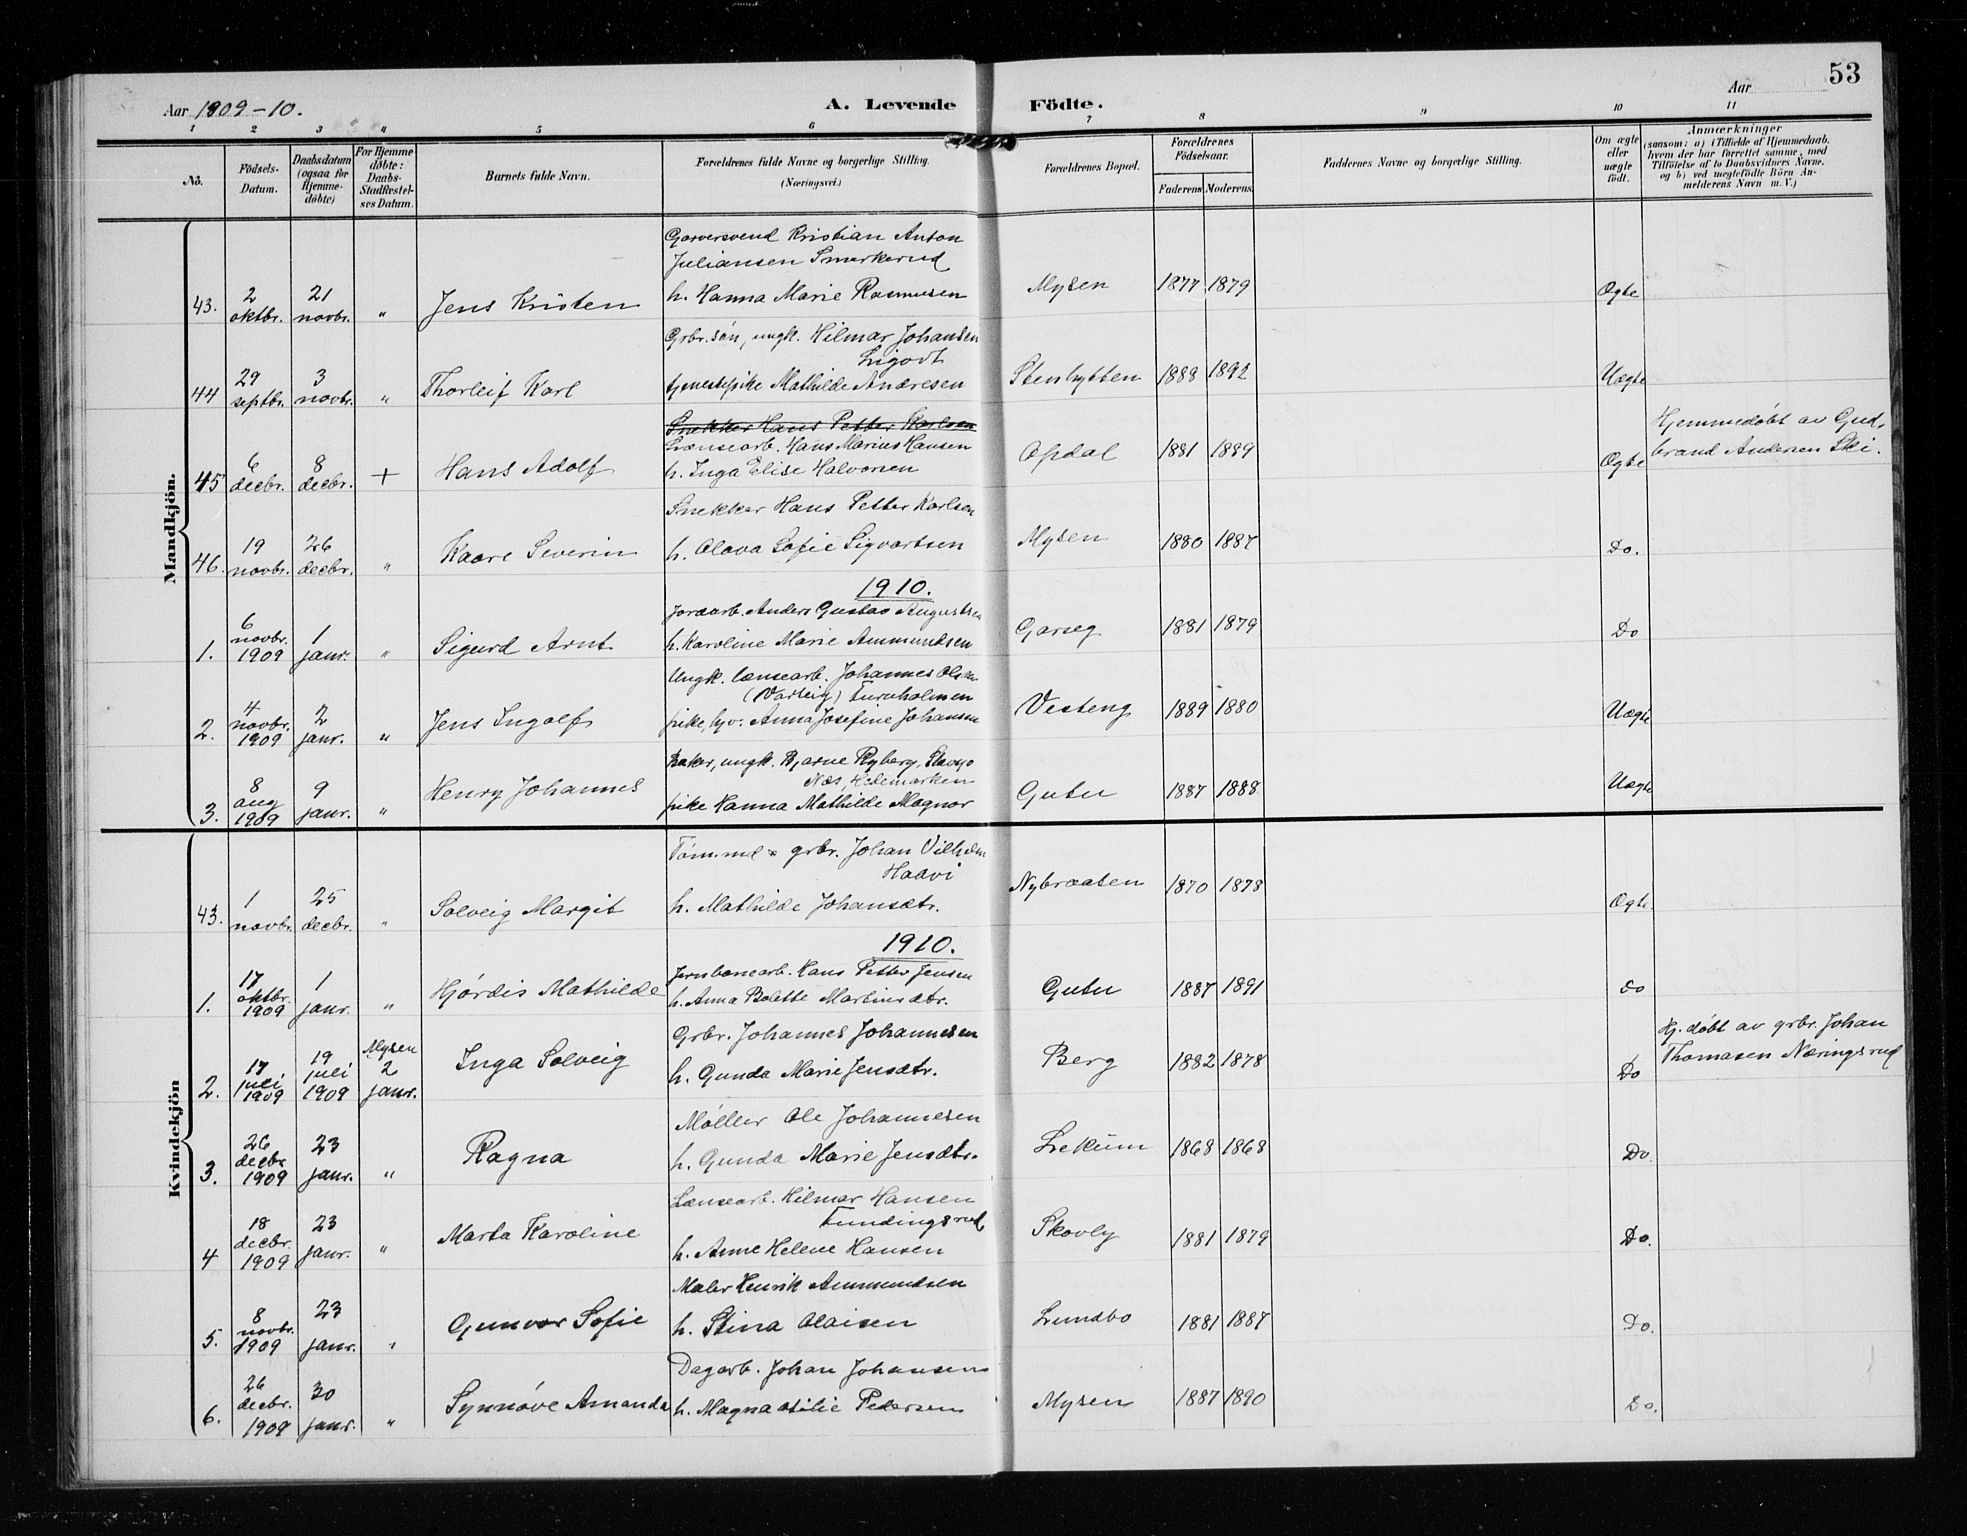 53
Aar 1909-10.
A. Levende Födte.
Aar
1 2 3 4 5 6 7 8 9 10 11
No.
Födsels-Datum.
Daabsdatum (ogsaa for Hjemme-döbte)
For Hjemme döbte: Daabs-Stadfæstel-ses Datum.
Barnets fulde Navn.
Forældrenes fulde Navne og borgerlige Stilling.
(Næringsvei.)
Forældrenes Bopæl.
Forældrenes Födselsaar.
Faderens Moderens
Faddernes Navne og borgerlige Stilling.
Om ægte eller uægte födt.
Anmærkninger
(saasom: a) i Tilfælde af Hjemmedaab,
hvem der har forrettet samme, med
Tilföielse af to Daabsvidners Navne.
og b) ved uægtefödte Börn An-
melderens Navn m. V.)
Mandkjön.
Garversvend Kristian Anton
Juliansen Smerkerud
43. 2 oktbr. 21 novbr. " Jens Kristen h. Hanna Marie Rasmusen Mysen 1877 1879 Ægte
Grbr. søn, ungk. Hilmar Johansen
Ligodt
44 29 septbr. 3 novbr. " Thorleif Karl tjenestepike Mathilde Andresen Stenhytten 1888 1892 Uægte
Snekker Hans Petter Karlsen
Lænsearb. Hans Marius Hansen
45 6 decbr. 8 decbr. + Hans Adolf h. Inga Elise Halvorsen Opdal 1881 1889 Ægte
Hjemmedøbt av Gud-
brand Andersen Ski.
Snekker Hans Petter Karlsen
46. 19 novbr. 26 decbr. " Kaare Severin h. Olava Sofie Sigvartsen Mysen 1880 1887 Do.
1910.
Jordarb. Anders Gustav Augustsen
1. 6 novbr. 1909 1 janr. " Sigurd Arnt h. Karoline Marie Ammundsen Garseg 1881 1879 Do
Ungk. lænsearb. Johannes Olsen
(Varteig) Furuholmen
2. 4 novbr. 1909 2 janr. " Jens Ingolf pike, hjv. Anna Josefine Johansen Vesteng 1889 1880 Uægte
Baker, ungk. Bjarne Ryberg,
Næs, Hedemarken
3. 8 aug 1909 9 janr. " Henry Johannes pike Hanna Mathilde Magnor Gutu 1887 1888 Uægte
Kvindekjön
Tømmd & grbr. Johan Vilhelm
Haavi
43. 1 novbr. 25 decbr. " Solveig Margit h. Mathilde Johansdtr. Nybraaten 1870 1878 Ægte
1910.
Jernbanearb. Hans Petter Jensen
1. 17 oktbr. 1909 1 janr. " Hjørdis Mathilde h. Anna Bolette Martinsdtr. Gutu 1887 1891 do
Grbr. Johannes Johannesen
2. 17 juli 1909 19 juli 1909 Mysen 2 janr. Inga Solveig h. Gunda Marie Jensdtr. Berg 1882 1878 Do
Hj. døbt av grbr. Johan
Thomasen Næringsrud
Møller Ole Johannesen
3. 26 decbr 1909 23 janr. " Ragna h. Gunda Marie Jensdtr. Lekum 1868 1868 Do.
Lænsearb. Hilmar Hansen
Fundingsrud
4 18 decbr. 1909 23 janr. " Marta Karoline h. Anne Helene Hansen Skovly 1881 1879 Do.
Maler Henrik Ammundsen
5. 8 novbr. 1909 23 janr. " Gunvor Sofie h. Stina Olaisen Lundbo 1881 1887 Do.
Dagarb. Johan Johansen
6. 26 decbr. 1909 30 janr. " Synnøve Amanda h. Magna Otilie Pedersen Mysen 1887 1890 Do.